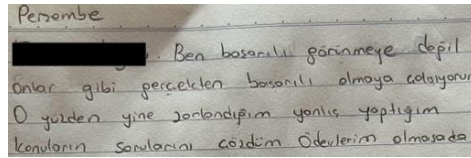 Persembe
. Ben başarılı görünmeye değil
onlar gibi gerçekten başarılı olmaya çalışıyorum
O yüzden yine zorlandığım yanlış yaptığım
konuların sorularını çözdüm Ödevlerim olmasada